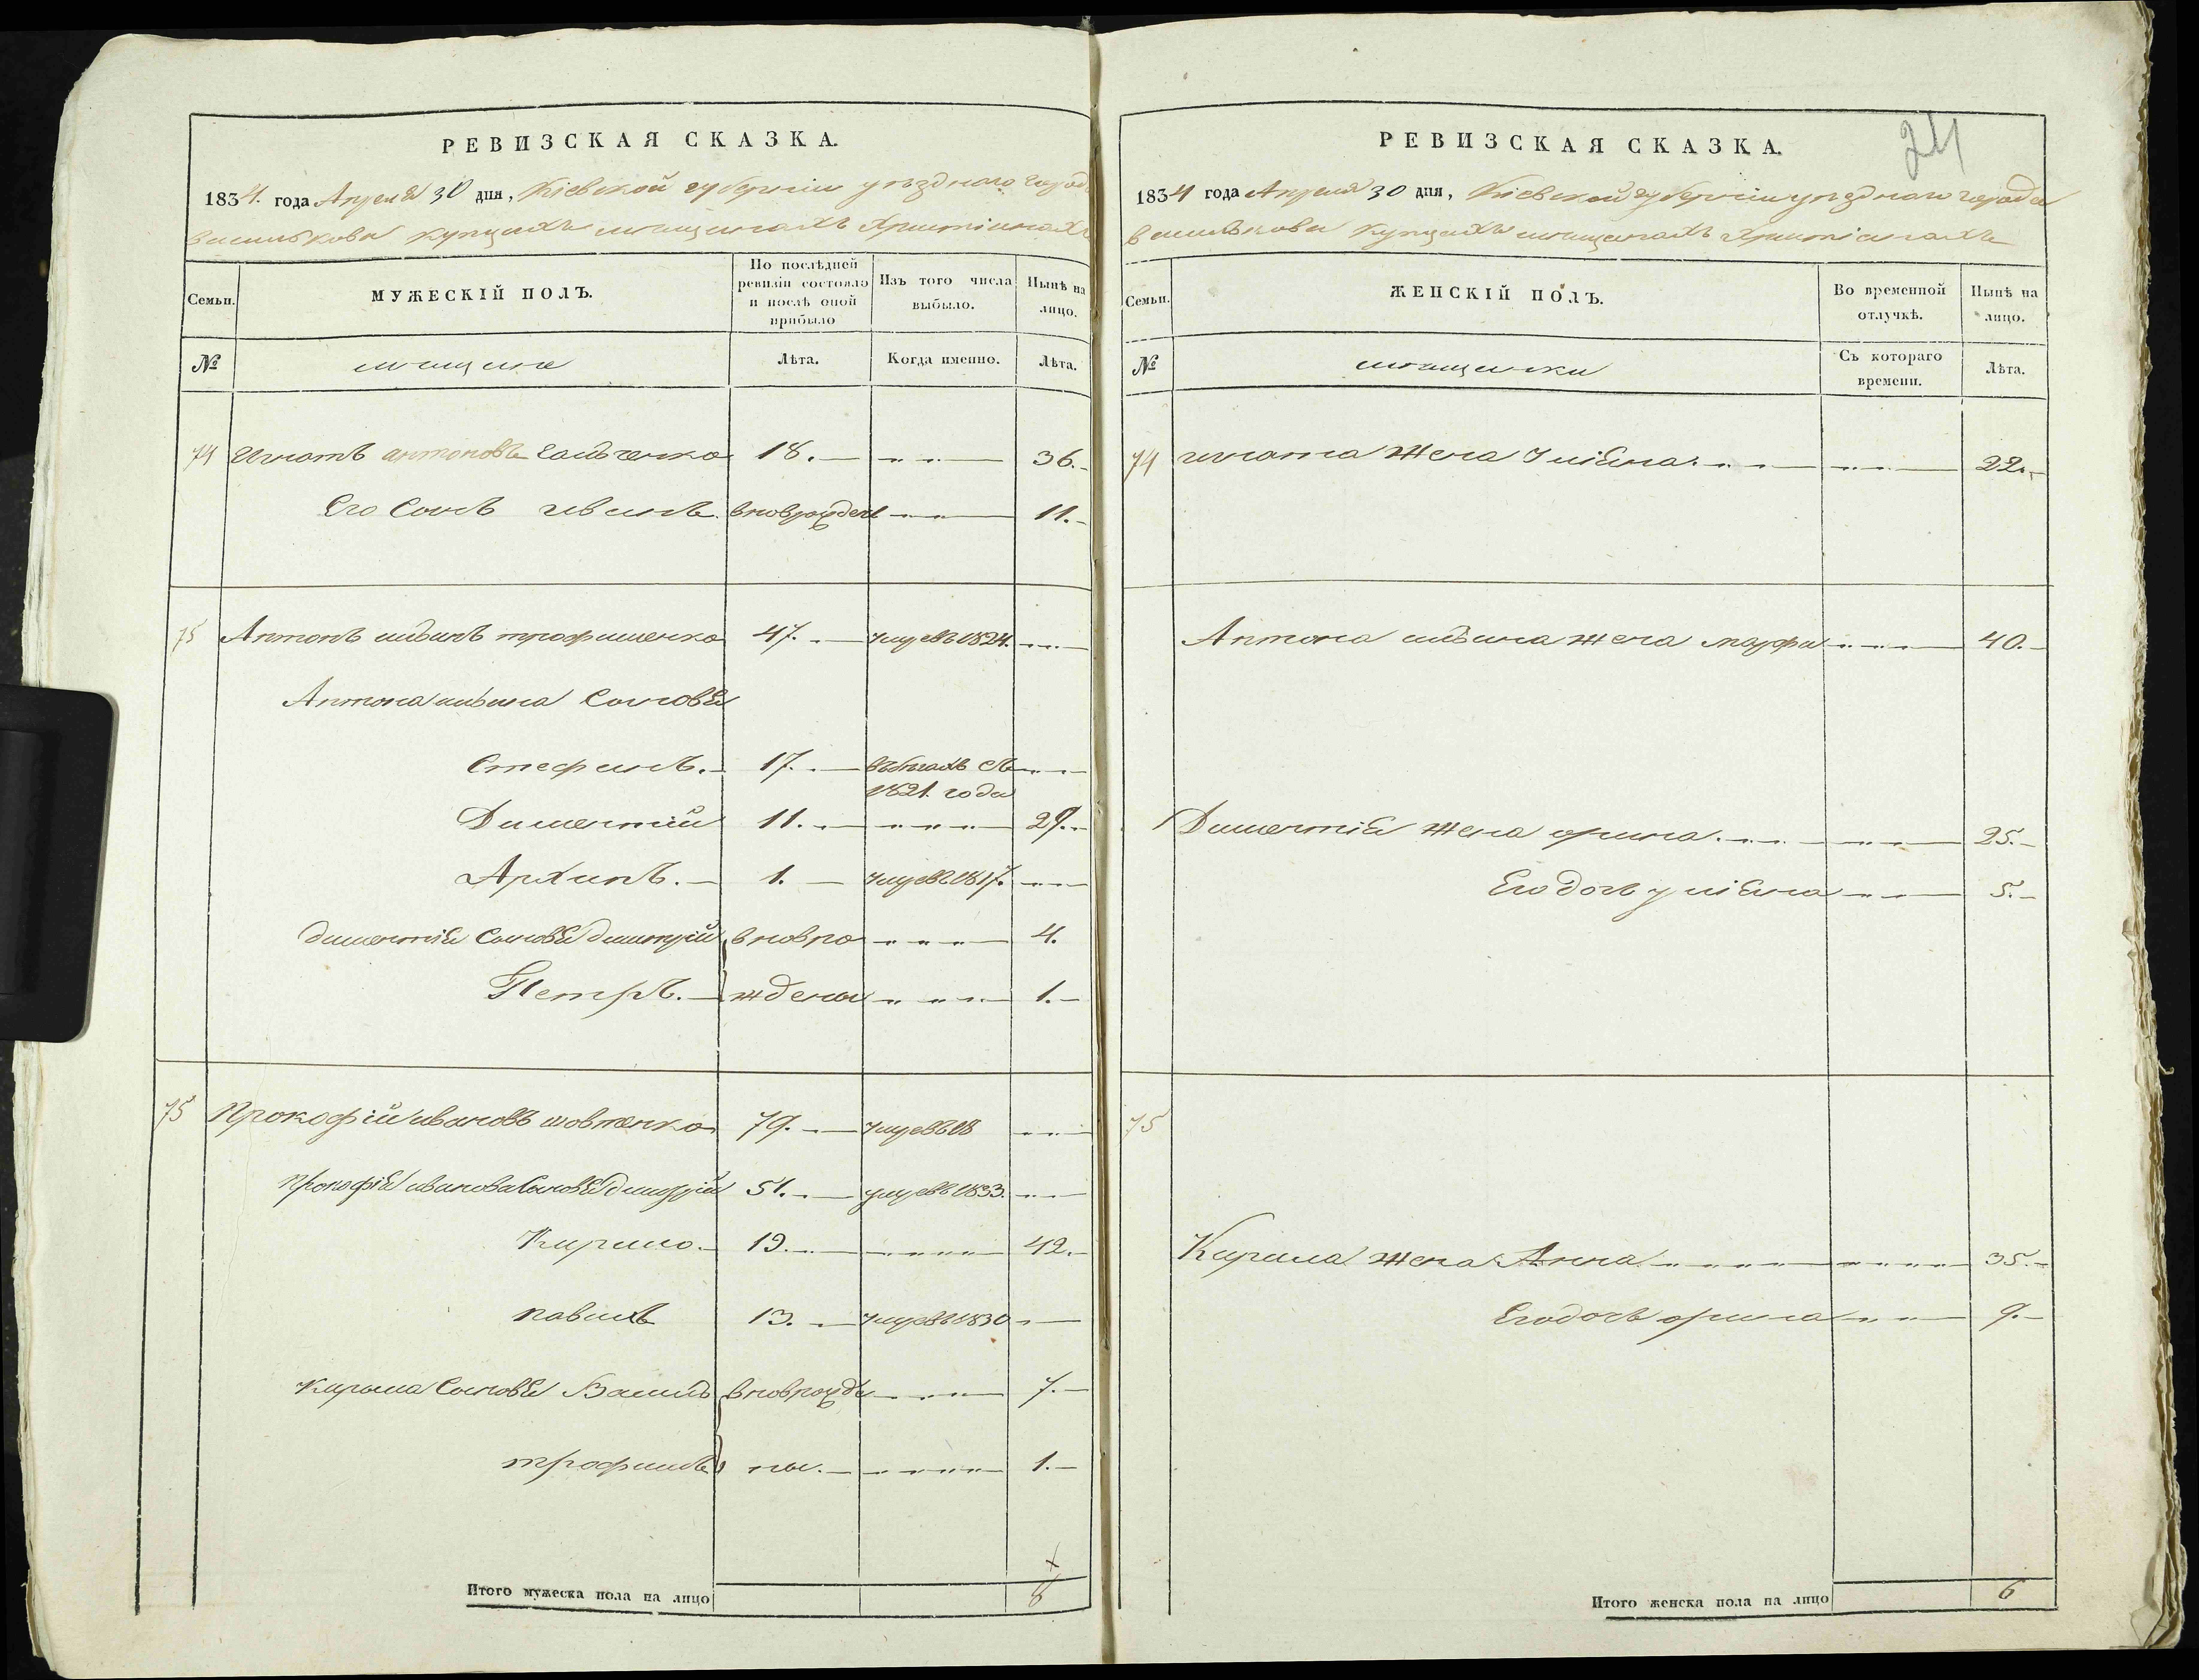 РЕВИЗСКАЯ СКАЗКА.
1834. года Апреля 30 дня, Кіевской губерніи уѣздного города
Василькова купцахъ мещанахъ христіянахъ
Семьи.
МУЖЕСКІЙ ПОЛЪ.
По послѣдней ревизіи состояло и послѣ оной прибыло
Изъ того числа выбыло.
Нынѣ на лицо.
№
мещане
Лѣта.
Когда именно.
Лѣта.
74 Игнатъ антоновъ 18. 36.
Его Сынъ иванъ. вновърожденъ 11.
75 Антонъ трофименко 47. умре въ 1824.
Антона Сыновья
Стефанъ. 17. въ бѣгахъ съ
1821. года
Дементій 11. 29.
Архипъ. 1. умре въ 1817.
дементія Сыновья димитрій вновро 4.
Петръ. ждены 1.
75 Прокофій ивановъ шовтенко 79. умре въ 18
Прокофія иванова Сыновья димитрій 51. умре въ 1833.
Кирило. 19. 42.
павилъ 13. умре въ 1830
Кирила Сыновья Василь вноврожде 7.
трофимъ ны. 1.
Итого мужеска пола на лицо 8
24
РЕВИЗСКАЯ СКАЗКА.
1834 года Апреля 30 дня, Кіевской губерніи уѣздного города
Василькова купцахъ мещанахъ христіянахъ
Семьи.
ЖЕНСКІЙ ПОЛЪ.
Во временной отлучкѣ.
Нынѣ на лицо.
№
мещанки
Съ котораго времени.
Лѣта.
74 игната жена Уліяна. 22.
Антона жена марфа 40.
Дементія жена орина. 25.
Его дочь уліяна 5.
75
Кирила жена Анна 35.
Его дочь орина 9.
Итого женска пола на лицо 6